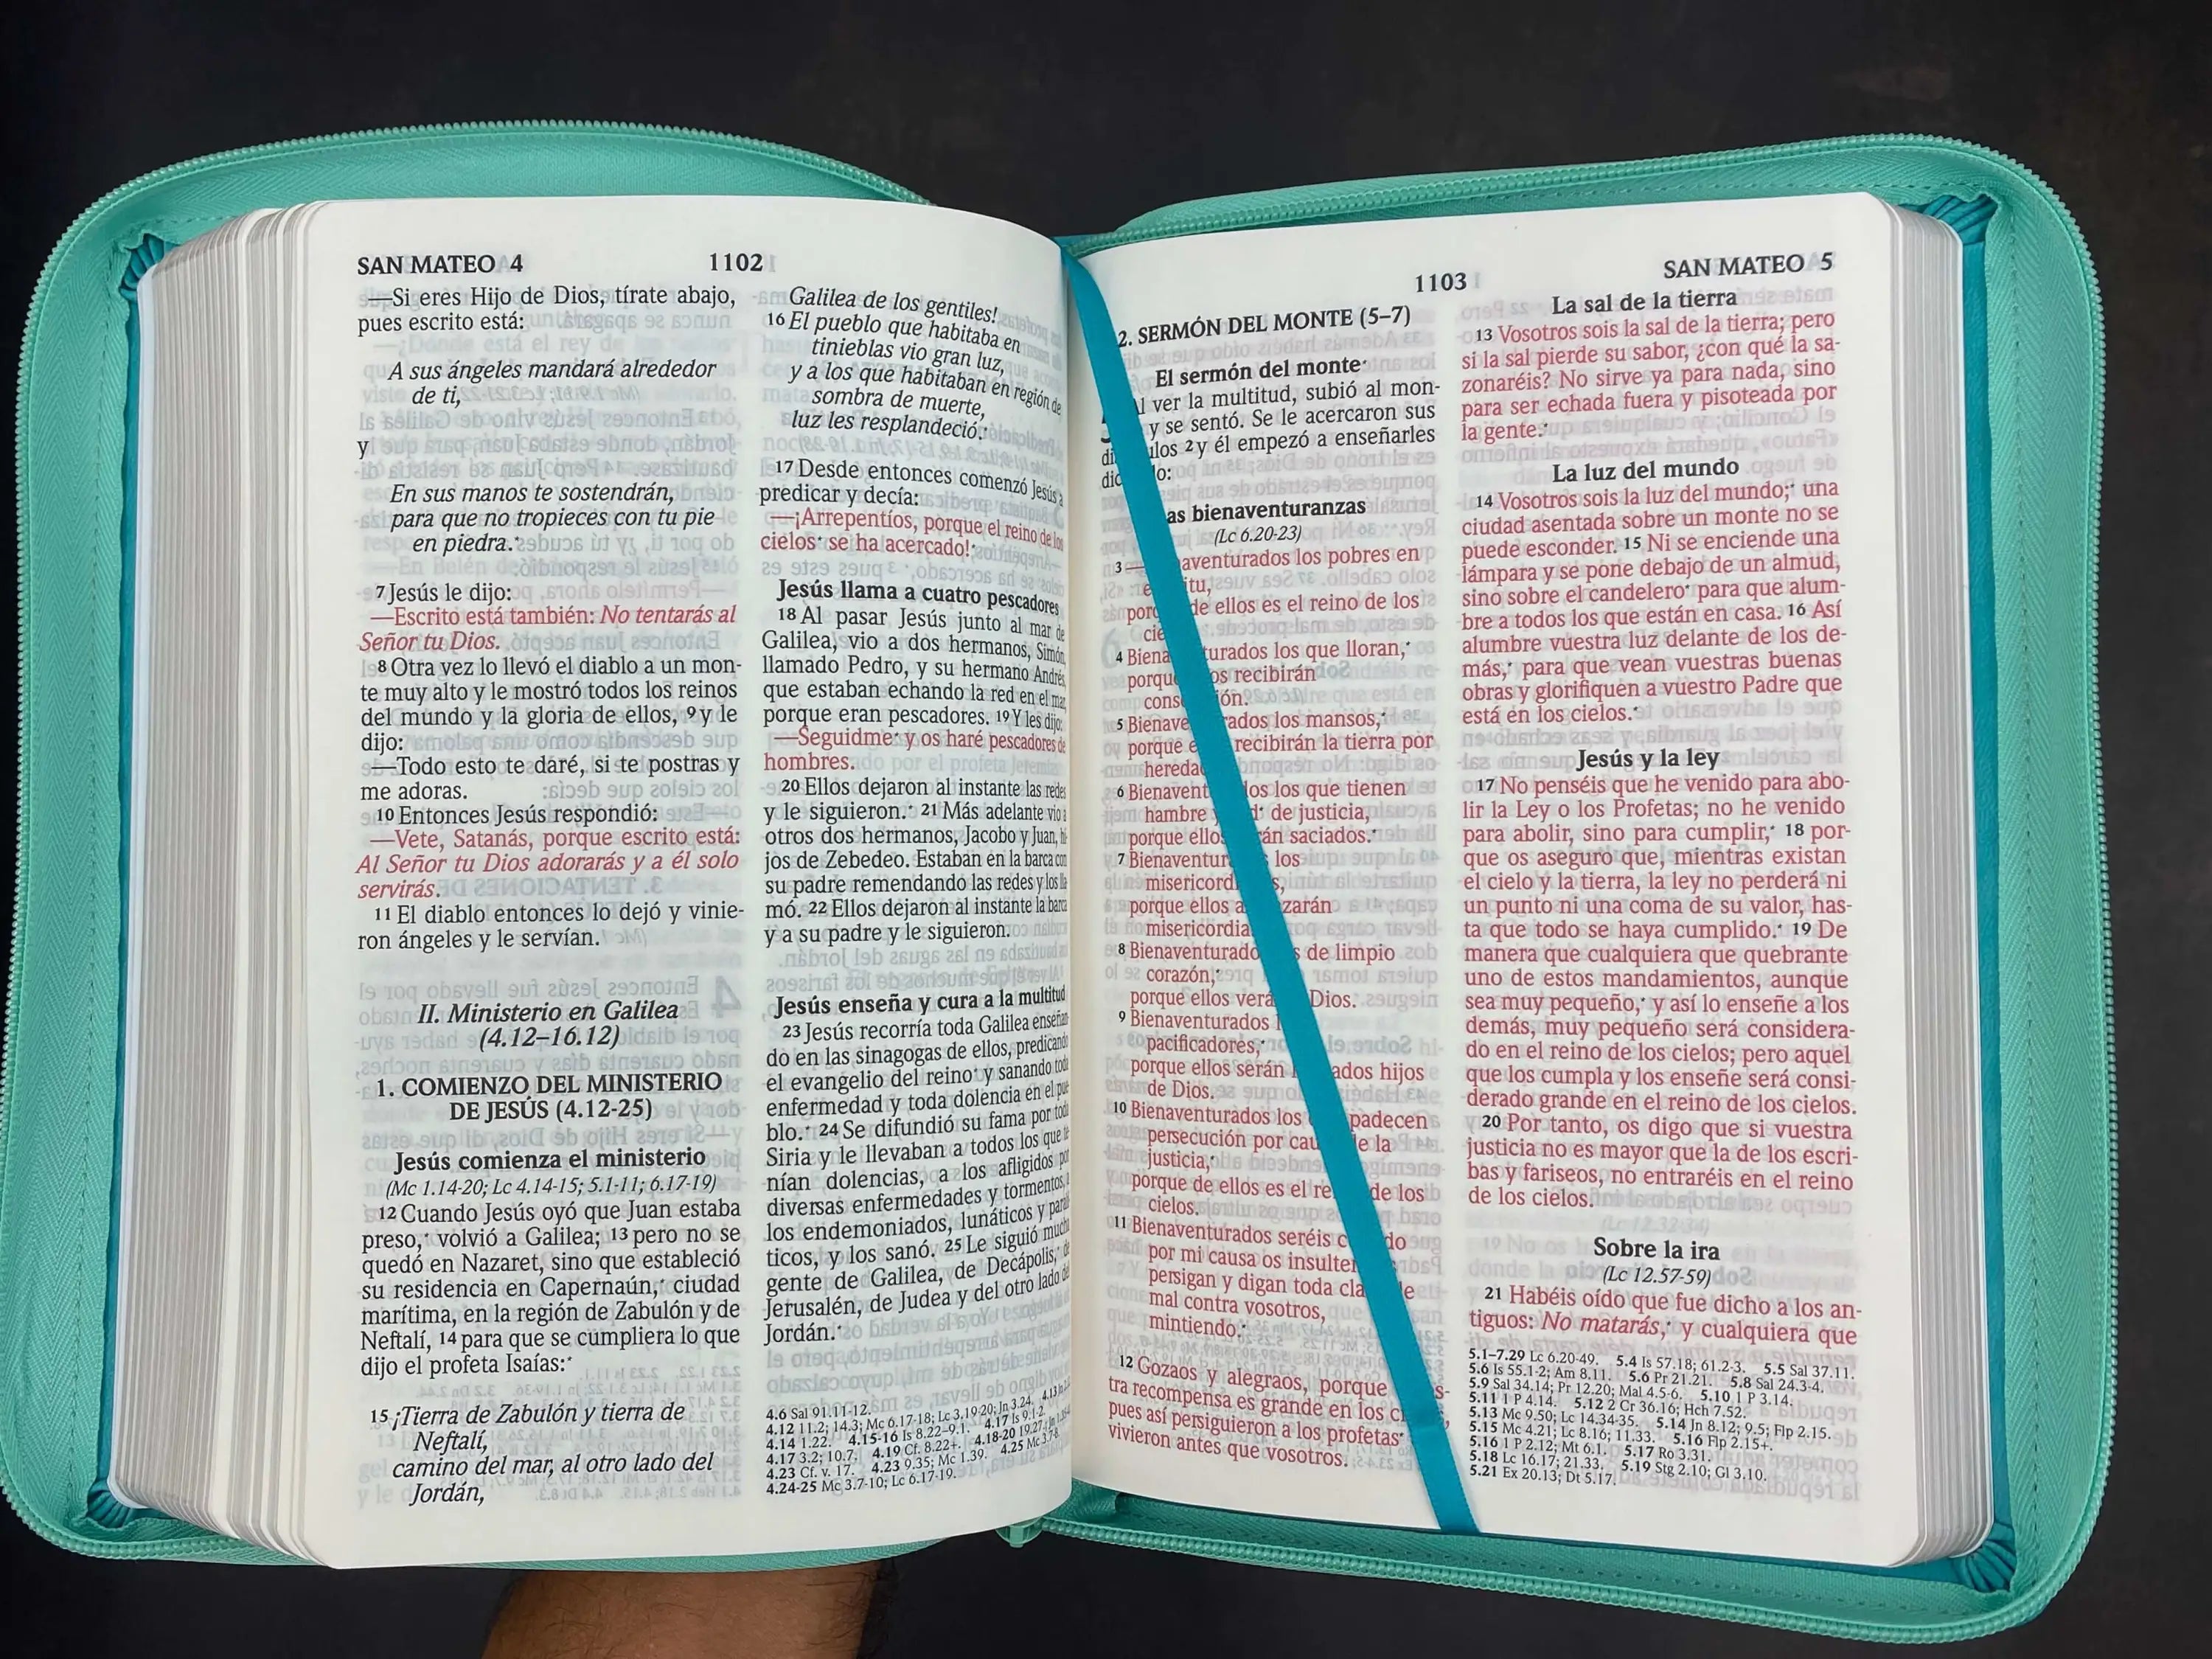 SAN MATEO 4
1102
—Si eres Hijo de Dios, tírate abajo,
pues escrito está:
A sus ángeles mandará alrededor
de ti,
y
En sus manos te sostendrán,
para que no tropieces con tu pie
en piedra.
7 Jesús le dijo:
—Escrito está también: No tentarás al
Señor tu Dios.
8 Otra vez lo llevó el diablo a un mon-
te muy alto y le mostró todos los reinos
del mundo y la gloria de ellos, 9 y le
dijo:
—Todo esto te daré, si te postras y
me adoras.
10 Entonces Jesús respondió:
—Vete, Satanás, porque escrito está:
Al Señor tu Dios adorarás y a él solo
servirás.
11 El diablo entonces lo dejó y vinie-
ron ángeles y le servían.
II. Ministerio en Galilea
(4.12–16.12)
1. COMIENZO DEL MINISTERIO
DE JESÚS (4.12-25)
Jesús comienza el ministerio
(Mc 1.14-20; Lc 4.14-15; 5.1-11; 6.17-19)
12 Cuando Jesús oyó que Juan estaba
preso, volvió a Galilea; 13 pero no se
quedó en Nazaret, sino que estableció
su residencia en Capernaún, ciudad
marítima, en la región de Zabulón y de
Neftalí, 14 para que se cumpliera lo que
dijo el profeta Isaías:
15 ¡Tierra de Zabulón y tierra de
Neftalí,
camino del mar, al otro lado del
Jordán,
Galilea de los gentiles!
16 El pueblo que habitaba en
tinieblas vio gran luz,
y a los que habitaban en región de
sombra de muerte,
luz les resplandeció.
17 Desde entonces comenzó Jesús a
predicar y decía:
—¡Arrepentíos, porque el reino de los
cielos se ha acercado!
Jesús llama a cuatro pescadores
18 Al pasar Jesús junto al mar de
Galilea, vio a dos hermanos, Simón,
llamado Pedro, y su hermano Andrés,
que estaban echando la red en el mar,
porque eran pescadores. 19 Y les dijo:
—Seguidme y os haré pescadores de
hombres.
20 Ellos dejaron al instante las redes
y le siguieron. 21 Más adelante vio a
otros dos hermanos, Jacobo y Juan, hi-
jos de Zebedeo. Estaban en la barca con
su padre remendando las redes y los lla-
mó. 22 Ellos dejaron al instante la barca
y a su padre y le siguieron.
Jesús enseña y cura a la multitud
23 Jesús recorría toda Galilea enseñan-
do en las sinagogas de ellos, predicando
el evangelio del reino y sanando toda
enfermedad y toda dolencia en el pue-
blo. 24 Se difundió su fama por toda
Siria y le llevaban a todos los que te-
nían dolencias, a los afligidos por
diversas enfermedades y tormentos, a
los endemoniados, lunáticos y paralí-
ticos, y los sanó. 25 Le siguió mucha
gente de Galilea, de Decápolis, de
Jerusalén, de Judea y del otro lado del
Jordán.
4.6 Sal 91.11-12.
4.12 11.2; 14.3; Mc 6.17-18; Lc 3.19-20; Jn 3.24. 4.13 Jn
4.14 1.22. 4.15-16 Is 8.22–9.1. 4.17 Is 9.1-2.
4.17 3.2; 10.7. 4.19 Cf. 8.22+. 4.18-20 19.27;
4.23 Cf. v. 17. 4.23 9.35; Mc 1.39. 4.25 Mc 3.7-8.
4.24-25 Mc 3.7-10; Lc 6.17-19.
1103
SAN MATEO 5
2. SERMÓN DEL MONTE (5–7)
El sermón del monte
l ver la multitud, subió al mon-
y se sentó. Se le acercaron sus
di ulos 2 y él empezó a enseñarles
dic o:
as bienaventuranzas
(Lc 6.20-23)
3 — aventurados los pobres en
itu,
porq de ellos es el reino de los
cie
4 Biena turados los que lloran,
porqu os recibirán
cons ión.
5 Bienave rados los mansos,
porque e recibirán la tierra por
hereda
6 Bienavent los los que tienen
hambre y d de justicia,
porque ellos rán saciados.
7 Bienaventur los
misericord s,
porque ellos a zarán
misericordia
8 Bienaventurado s de limpio
corazón,
porque ellos verá Dios.
9 Bienaventurados l
pacificadores,
porque ellos serán l ados hijos
de Dios.
10 Bienaventurados los padecen
persecución por cau e la
justicia,
porque de ellos es el re de los
cielos.
11 Bienaventurados seréis c do
por mi causa os insulten
persigan y digan toda cla e
mal contra vosotros,
mintiendo.
12 Gozaos y alegraos, porque s-
tra recompensa es grande en los ci ,
pues así persiguieron a los profetas
vivieron antes que vosotros.
La sal de la tierra
13 Vosotros sois la sal de la tierra; pero
si la sal pierde su sabor, ¿con qué la sa-
zonaréis? No sirve ya para nada, sino
para ser echada fuera y pisoteada por
la gente.
La luz del mundo
14 Vosotros sois la luz del mundo; una
ciudad asentada sobre un monte no se
puede esconder. 15 Ni se enciende una
lámpara y se pone debajo de un almud,
sino sobre el candelero para que alum-
bre a todos los que están en casa. 16 Así
alumbre vuestra luz delante de los de-
más, para que vean vuestras buenas
obras y glorifiquen a vuestro Padre que
está en los cielos.
Jesús y la ley
17 No penséis que he venido para abo-
lir la Ley o los Profetas; no he venido
para abolir, sino para cumplir, 18 por-
que os aseguro que, mientras existan
el cielo y la tierra, la ley no perderá ni
un punto ni una coma de su valor, has-
ta que todo se haya cumplido. 19 De
manera que cualquiera que quebrante
uno de estos mandamientos, aunque
sea muy pequeño, y así lo enseñe a los
demás, muy pequeño será considera-
do en el reino de los cielos; pero aquel
que los cumpla y los enseñe será consi-
derado grande en el reino de los cielos.
20 Por tanto, os digo que si vuestra
justicia no es mayor que la de los escri-
bas y fariseos, no entraréis en el reino
de los cielos.
Sobre la ira
(Lc 12.57-59)
21 Habéis oído que fue dicho a los an-
tiguos: No matarás, y cualquiera que
5.1–7.29 Lc 6.20-49. 5.4 Is 57.18; 61.2-3. 5.5 Sal 37.11.
5.6 Is 55.1-2; Am 8.11. 5.6 Pr 21.21. 5.8 Sal 24.3-4.
5.9 Sal 34.14; Pr 12.20; Mal 4.5-6. 5.10 1 P 3.14.
5.11 1 P 4.14. 5.12 2 Cr 36.16; Hch 7.52.
5.13 Mc 9.50; Lc 14.34-35. 5.14 Jn 8.12; 9.5; Flp 2.15.
5.15 Mc 4.21; Lc 8.16; 11.33. 5.16 Flp 2.15+.
5.16 1 P 2.12; Mt 6.1. 5.17 Ro 3.31.
5.18 Lc 16.17; 21.33. 5.19 Stg 2.10; Gl 3.10.
5.21 Ex 20.13; Dt 5.17.